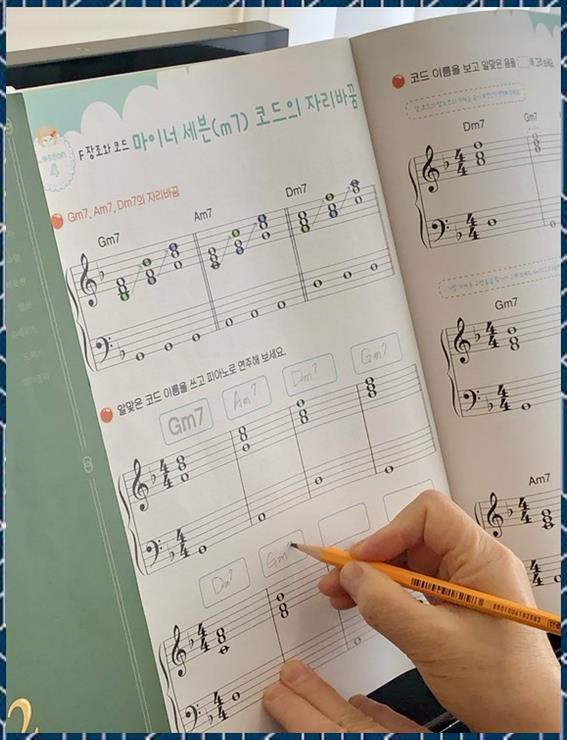 Lesson
4
F 장조와 코드 마이너 세븐(m7) 코드의 자리바꿈
Gm7, Am7, Dm7의 자리바꿈
Gm7
Am7
Dm7
알맞은 코드 이름을 쓰고 피아노로 연주해 보세요.
Gm7
Am7
Dm7
Gm7
Dm7
Gm7
코드 이름을 보고 알맞은 음을
Dm7
Gm7
Gm7
Am7
8801006192583
2